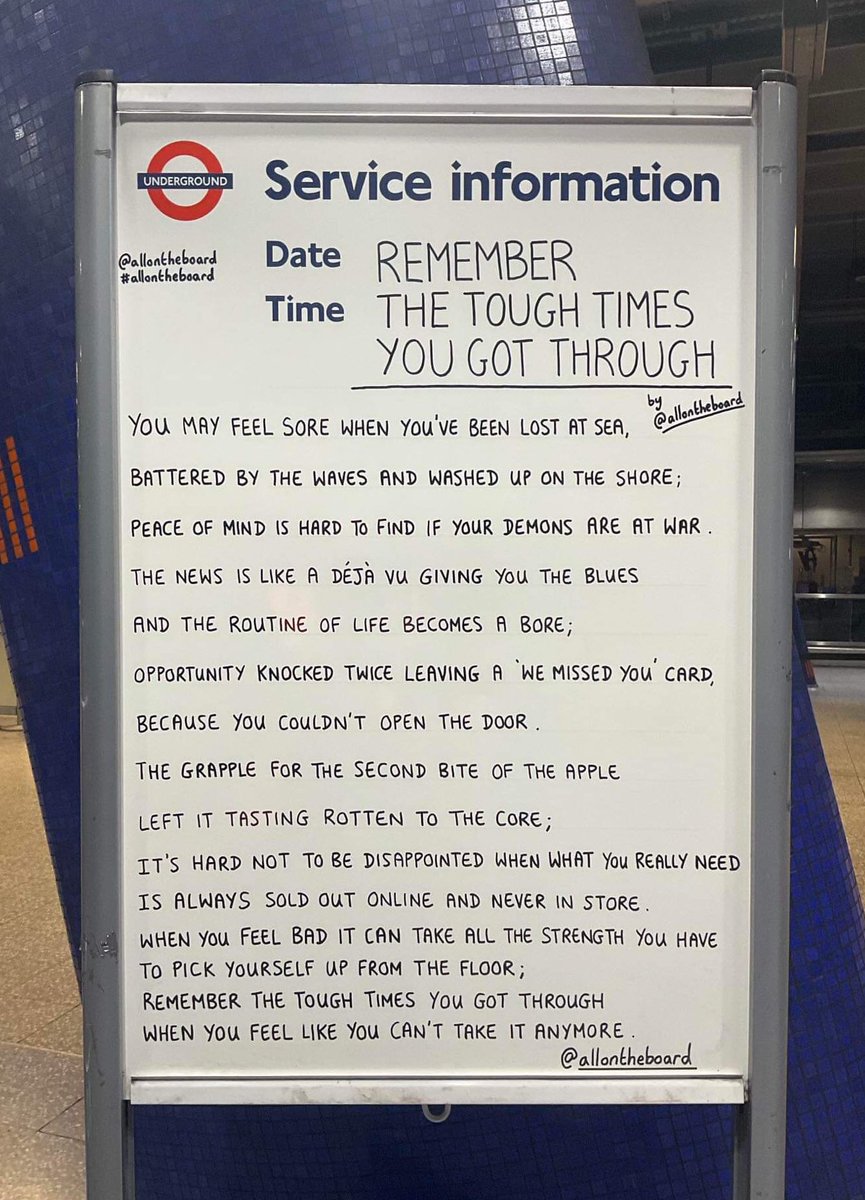 UNDERGROUND
Service information
@allontheboard
#allontheboard
Date REMEMBER
Time THE TOUGH TIMES
YOU GOT THROUGH
by
@allontheboard
YOU MAY FEEL SORE WHEN YOU'VE BEEN LOST AT SEA,
BATTERED BY THE WAVES AND WASHED UP ON THE SHORE;
PEACE OF MIND IS HARD TO FIND IF YOUR DEMONS ARE AT WAR.
THE NEWS IS LIKE A DÉJÀ VU GIVING YOU THE BLUES
AND THE ROUTINE OF LIFE BECOMES A BORE;
OPPORTUNITY KNOCKED TWICE LEAVING A 'WE MISSED YOU' CARD,
BECAUSE YOU COULDN'T OPEN THE DOOR.
THE GRAPPLE FOR THE SECOND BITE OF THE APPLE
LEFT IT TASTING ROTTEN TO THE CORE;
IT'S HARD NOT TO BE DISAPPOINTED WHEN WHAT YOU REALLY NEED
IS ALWAYS SOLD OUT ONLINE AND NEVER IN STORE.
WHEN YOU FEEL BAD IT CAN TAKE ALL THE STRENGTH YOU HAVE
TO PICK YOURSELF UP FROM THE FLOOR;
REMEMBER THE TOUGH TIMES YOU GOT THROUGH
WHEN YOU FEEL LIKE YOU CAN'T TAKE IT ANYMORE.
@allontheboard